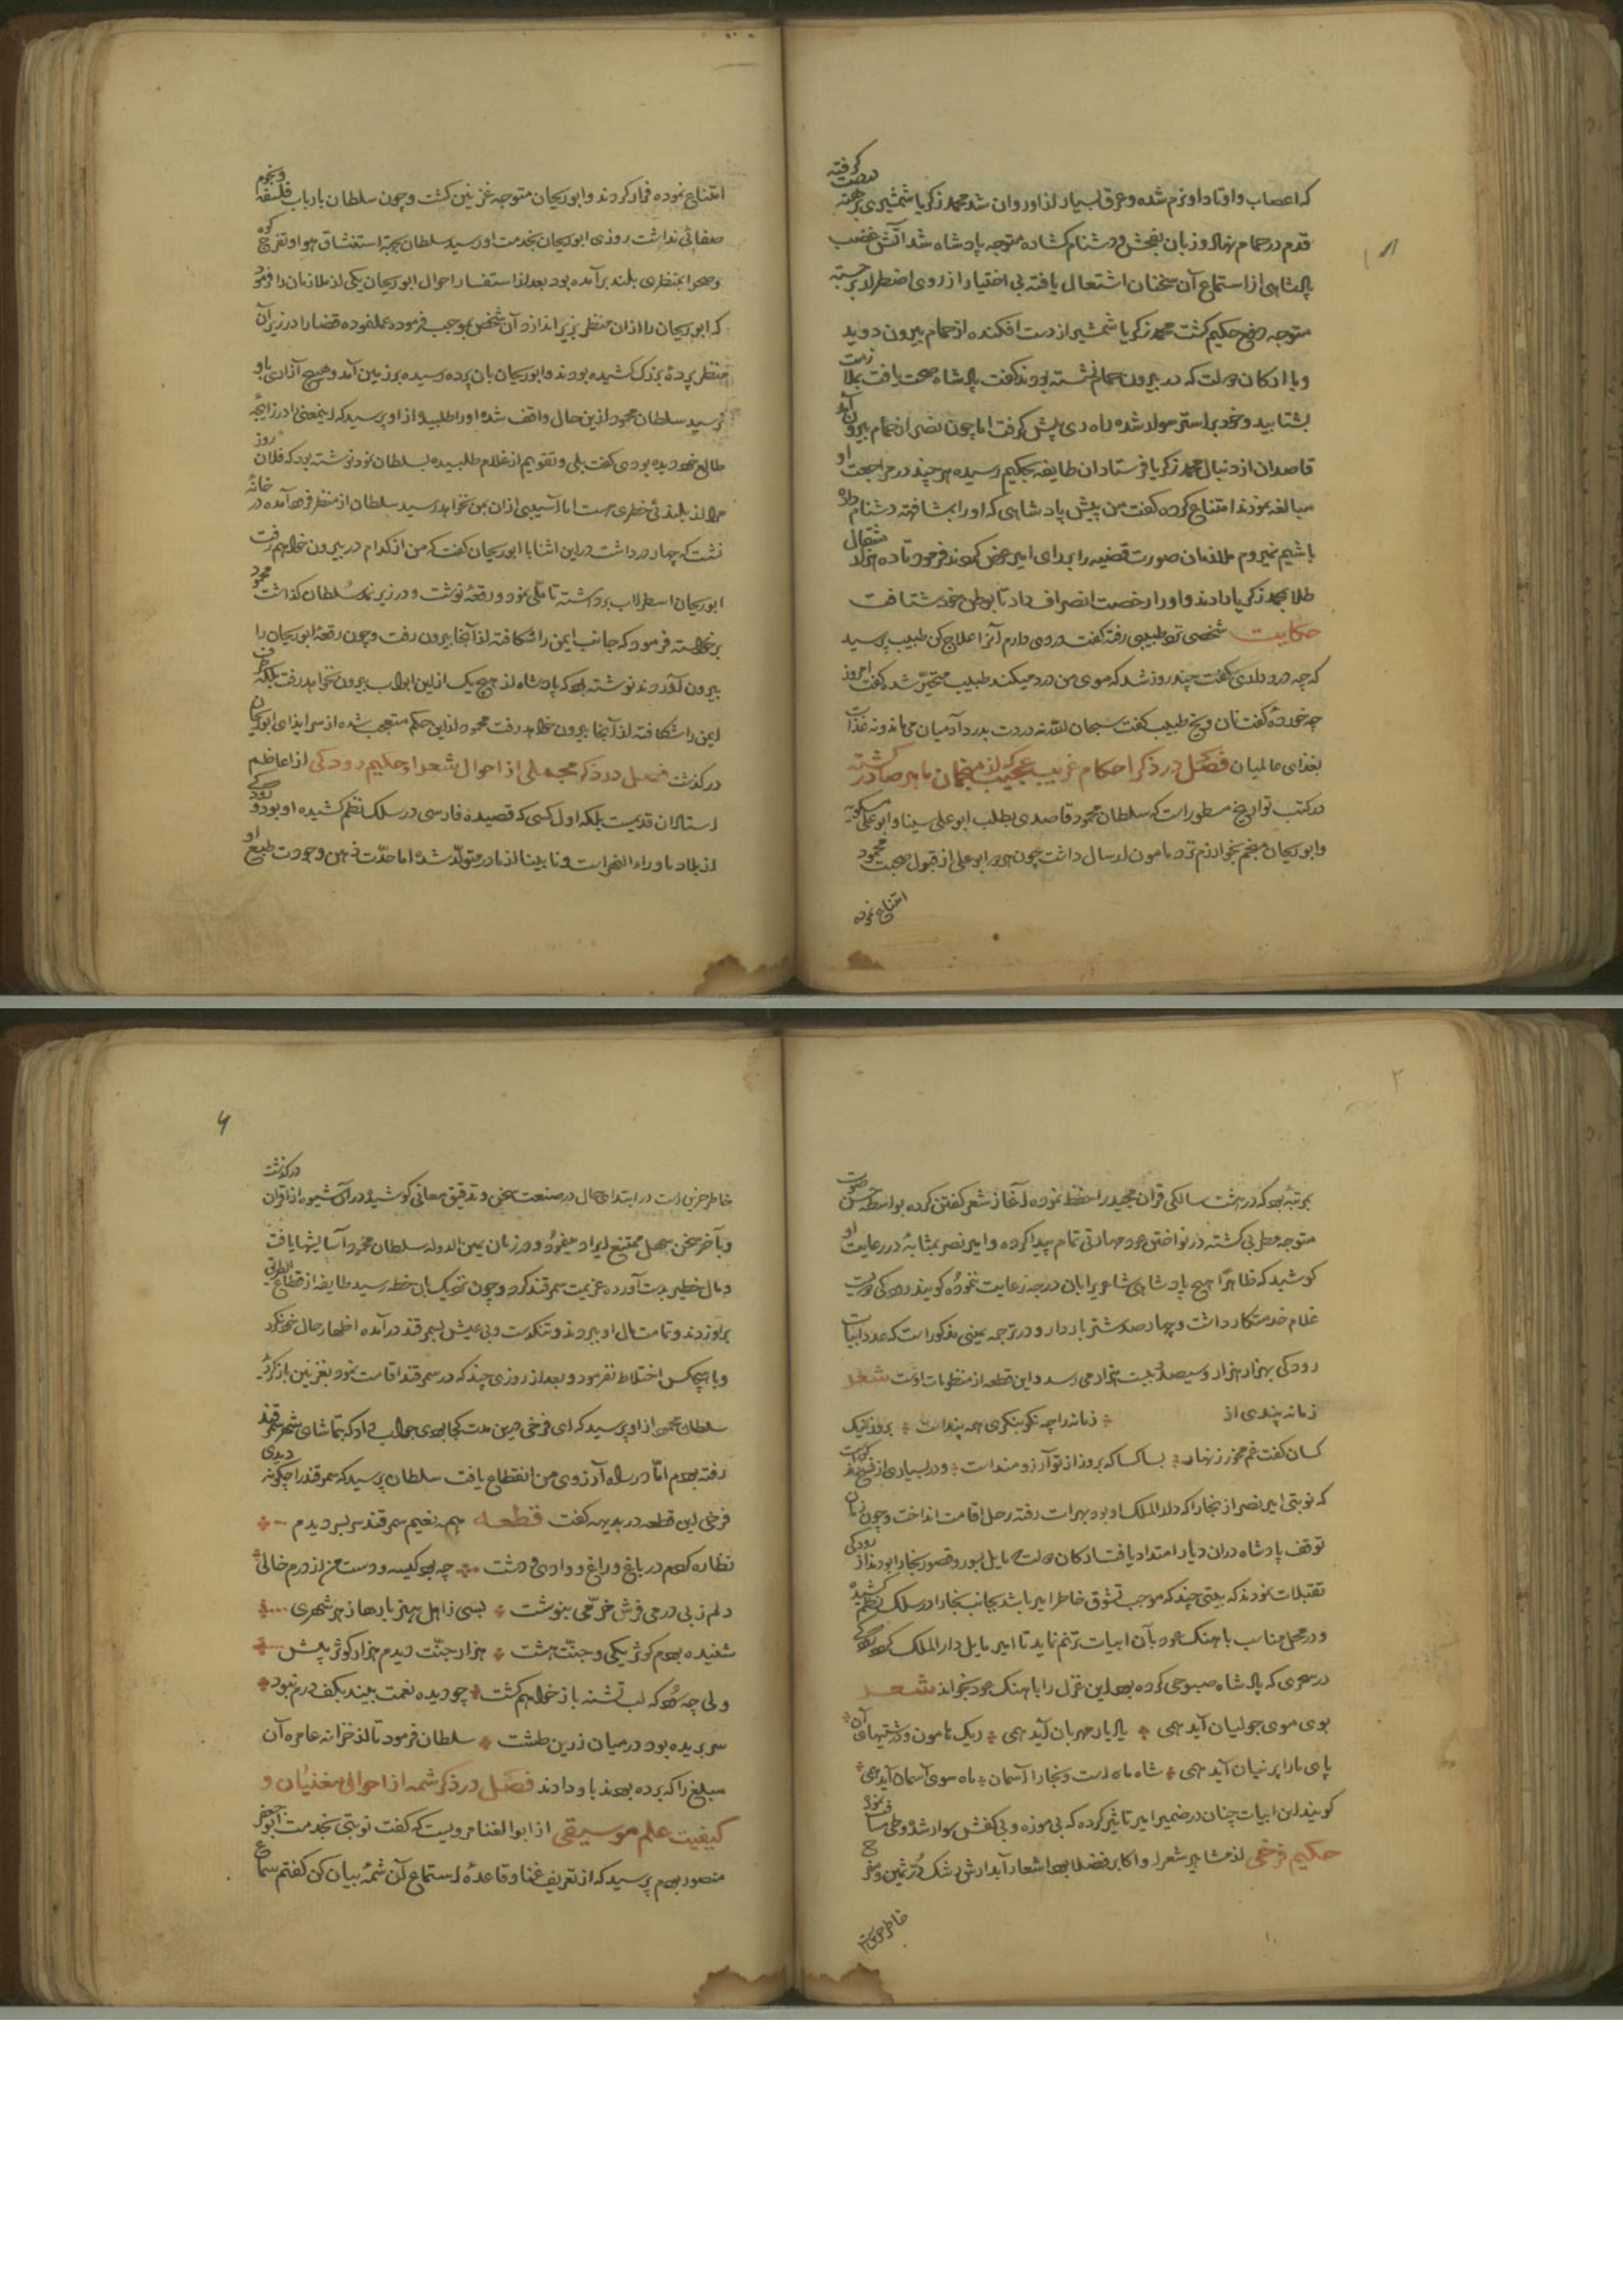 که اعصاب و اوتاد او نرم شده و عرق بسیار از او روان شد محمد زکریا شمشیری برهنه بدست گرفته
قدم در حمام نهاد و زبان بفحش و دشنام کشاده متوجه پادشاه شد آتش غضب
پادشاهی از استماع آن سخنان اشتعال یافته بی اختیار از روی اضطرار برجسته
متوجه دفع حکیم کشت محمد زکریا شمشیر از دست افکنده از حمام بیرون دوید
و با ارکان دولت که در بیرون حمام نشسته بودند کفت پادشاه صحت یافت
بشتابید و خود بر استر سوار شده راه ری پیش کرفت اما چون نصر از حمام بیرون آمد
قاصدان از دنبال محمد زکریا فرستاد آن طایفه بحکیم رسیده هر چند در مراجعت او
مبالغه نمودند امتناع کرده کفت من پیش پادشاهی که او را بمشافهه دشنام داده
باشیم نمیروم ملازمان صورت قضیه را برای امیر عرض کردند فرمود تا ده هزار مثقال
طلا بمحمد زکریا دادند و او را رخصت انصراف داد تا بوطن خود شتافت
حکایت شخصی نزد طبیبی رفته کفت دردی دارم آنرا علاج کن طبیب پرسید
که چه درد داری کفت چند روز شد که موی من درد میکند طبیب متحیر شد کفت امروز
چه خوردهٔ کفت نان و یخ طبیب کفت سبحان الله نه دردت بدرد آدمیان می ماند و نه غذات
بغذای عالمیان فصل در ذکر احکام غریب عجیب که از منجمان ماهر صادر کشته
در کتب تواریخ مسطور است که سلطان محمود قاصدی بطلب ابو علی سینا و ابو علی مسکویه
و ابو ریحان منجم بخوارزم نزد مامون ارسال داشت چون هر دو ابو علی از قبول صحبت محمود
امتناع نموده
امتناع نموده فرار کردند و ابو ریحان متوجه غزنین کشت و چون سلطان بارباب فلسفه و نجوم
صفائی نداشت روزی ابو ریحان بخدمت او رسید سلطان بجهة استنشاق هوا و تفرج کوه
و صحرا بمنظری بلند برآمده بود بعد از استفسار احوال ابو ریحان یکی از ملازمان را فرمود
که ابو ریحان را از آن منظر بزیر اندازد آن شخص بموجب فرموده عمل نموده قضا را در زیر آن
منظر پردهٔ بزرک کشیده بودند و ابو ریحان بآن پرده رسیده بر زمین آمد و هیچ آزاری باو
نرسید سلطان محمود ازین حال واقف شده او را طلبید و از او پرسید که اینمعنی را در زایجهٔ
طالع خود دیده بودی کفت بلی و تقویم از غلام طلبیده بسلطان نمود نوشته بود که فلان روز
مرا از بلندئی خطری هست اما آسیبی از آن بمن نخواهد رسید سلطان از منظر فرود آمده در خانهٔ
نشست که چهار در داشت در این اثنا با ابو ریحان کفت که من از کدام در بیرون خواهم رفت
ابو ریحان اسطرلاب برداشته تاملی نمود و رقعهٔ نوشت و در زیر نمد سلطان کذاشت محمود
برخواسته فرمود که جانب ایمن را شکافته از آنجا بیرون رفت و چون رقعهٔ ابو ریحان را
بیرون آوردند نوشته بود که پادشاه از هیچ یک ازاین ابواب بیرون نخواهد رفت بلکه طرف
ایمن را شکافته از آنجا بیرون خواهد رفت محمود ازاین حکم متعجب شده از سر ایذای ابو ریحان
در کذشت فصل در ذکر مجملی از احوال شعرا حکیم رودکی از اعاظم
استادان قدیمست بلکه اول کسی که قصیده فارسی در سلک نظم کشیده او بود و رودکی
از بلاد ماوراء النهر است و نابینا از مادر متولد شده اما حدّت ذهن و جودت طبع او
بمرتبهٔ بود که در هشت سالکی قرآن مجید را حفظ نموده آغاز شعر کفتن کرده بواسطه حسن صوت
متوجه مطربی کشته در نواختن عود مهارتی تمام پیدا کرده و امیر نصر بمثابهٔ در رعایت او
کوشید که ظاهراً هیچ پادشاهی شاعریرا بآن درجه رعایت ننموده کویند رودکی دویست
غلام خدمتکار داشت و چهار صد شتر باردار و در ترجمه یمینی مذکور است که عدد ابیات
رودکی بهزار هزار و سیصد بیت هزار می رسد و این قطعه از منظومات اوست شعر
زمانه پندی از زمانه را چه نکو بنکری همه پنداست بروز نیک
کسان کفت غم مخور زنهار بسا کسا که بروز تو آرزومند است و در بسیاری از نسخ مذکور است
که نوبتی امیر نصر از بخارا که دار الملک او بود بهرات رفته رحل اقامت انداخت و چون زمان
توقف پادشاه در آن دیار امتداد یافت ارکان دولت که مایل بسور و قصور بخارا بودند از رودکی
تقبلات نمودند که بیتی چند که موجب تشوق خاطر امیر باشد بجانب بخارا در سلک نظم کشیده
و در محل مناسب با هنک عود بآن ابیات ترنم نماید تا امیر مایل دار الملک کردد رودکی
در سحری که پادشاه صبوحی کرده بود این غزل را باهنک عود بخواند شعر
بوی موی جولیان آید همی یاد یار مهربان آید همی ریک هامون و درشتیهای آن
پای ما را پرنیان آید همی شاه ماه است و بخارا آسمان ماه سوی آسمان آید همی
کویند این ابیات چنان در ضمیر امیر تاثیر کرده که بی موزه و بی کفش سوار شد و طی مسافت نمود
حکیم فرخی از مشاهیر شعرا و اکابر فضلا بود اشعار آبدارش رشک دُرّ ثمین و مفرح
خاطر حزین است
خاطر حزین است در ابتدای حال در صنعت سخن و تدقیق معانی کوشیده در آن شیوه از اقران در کذشت
و بآخر سخن سهل ممتنع ایراد میفرمود و در زمان یمین الدوله سلطان محمود آسایشها یافت
و مال خطیر بدست آورده عزیمت سمرقند کرد و چون نزدیک بآن خطه رسید طایفه از قطاع الطریق
بر او زدند و تمامت مال او ببردند و تنکدست و بی عیش بسمرقند در آمده اظهار حال خود نکرد
و با هیچکس اختلاط نفرمود و بعد از روزی چند که در سمرقند اقامت نمود بغزنین باز کردید
سلطان محمود از او پرسید که ای فرخی درین مدت کجا بودی جواب داد که بتماشای شهر سمرقند
رفته بودم امّا در راه آرزوی من انقطاع یافت سلطان پرسید که سمرقند را چکونه دیدی
فرخی این قطعه در بدیهه کفت قطعه همه نعیم سمرقند سربسر دیدم
نظاره کردم در باغ و راغ و وادی و دشت چه بود کیسه و دست من از درم خالی
دلم ز بی درمی فرش خرّمی بنوشت بسی ز اهل هنر بارها ز هر شهری
شنیده بودم کوثر یکی و جنّت هشت هزار جنّت دیدم هزار کوثر پیش
ولی چه سود که لب تشنه باز خواهم کشت چو دیده نعمت بیند بکف درم نبود
سر بریده بود در میان زرین طشت سلطان فرمود تا از خزانه عامره آن
مبلغ را که برده بودند باو دادند فصل در ذکر شمه از احوال مغنیان و
کیفیت علم موسیقی از ابو الغنا مرویست که کفت نوبتی بخدمت ابو جعفر
منصور بودم پرسید که از تعریف غنا و قاعدهٔ استماع آن شمهٔ بیان کن کفتم سماع